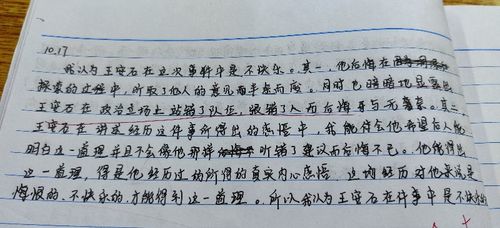 10.17
我认为王安石在这次事件中是不快乐。其一,他后悔在
探索的过程中,听取了他人的意见而半途而废。同时也暗暗地显露出
王安石在政治立场上站错了队伍,跟错了人而后悔与无奈。其二
王安石在讲述经历这件事所得出的感悟中,我能体会他希望后人能
明白这一道理并且不会像他那样听错了建议而后悔不已。他能得出
这一道理,得是他经历过的所得的真实内心感悟,这场经历对他来说是
悔恨的、不快乐的,才能得到这一道理。所以我认为王安石在件事中是不快乐